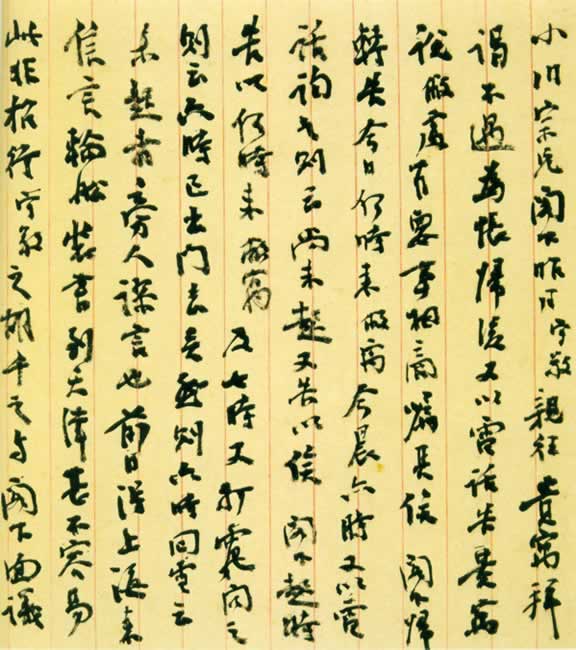 小川宗兄閣下昨日守敬親往貴寓拜
謁不遇為悵歸後又以電話告貴寓
說敝處有要事相商囑其俟閣下歸
轉告今日何時來敝寓今晨六時又以電
話詢之則云尚未起又告以俟閣下起時
告以何時來敝寓及七時又打電問之
則云六時已出門去矣然則六時回電云
未起者旁人謊言也前日得上海來
信言輪船裝書到天津甚不容易
此非行守敬之胡千之与閣下面議